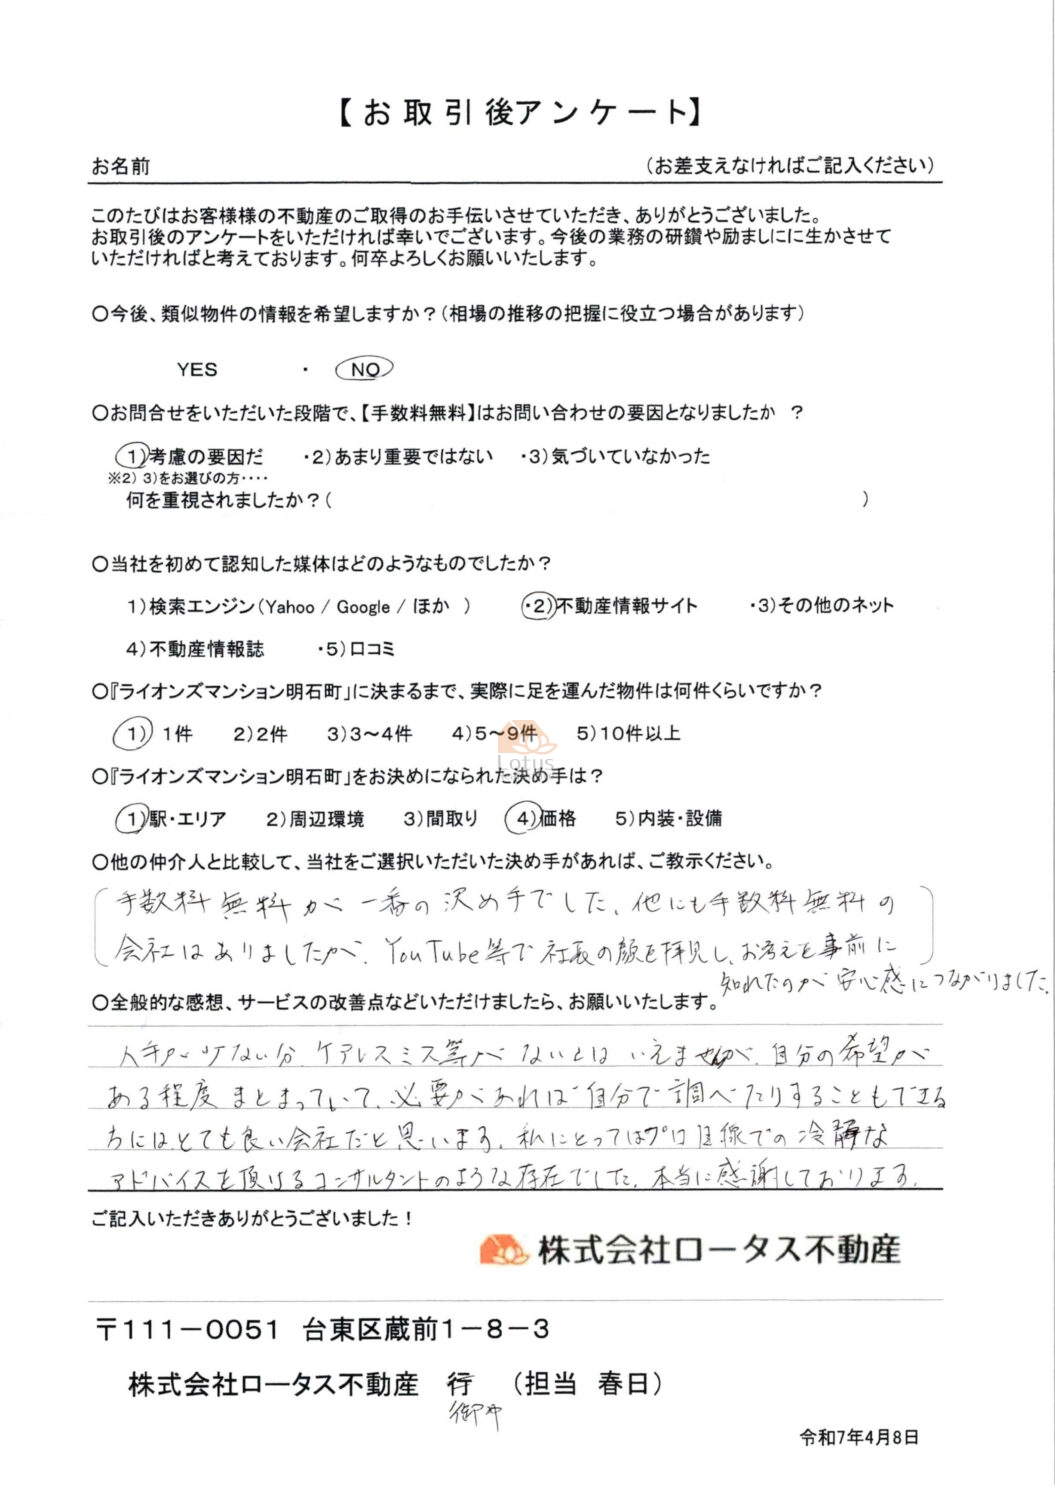 【お取引後アンケート】
お名前 (お差支えなければご記入ください)
このたびはお客様様の不動産のご取得のお手伝いさせていただき、ありがとうございました。
お取引後のアンケートをいただければ幸いでございます。今後の業務の研鑽や励ましにに生かさせて
いただければと考えております。何卒よろしくお願いいたします。
〇今後、類似物件の情報を希望しますか?(相場の推移の把握に役立つ場合があります)
YES ・ NO
〇お問合せをいただいた段階で、【手数料無料】はお問い合わせの要因となりましたか ?
1)考慮の要因だ ・2)あまり重要ではない ・3)気づいていなかった
※2) 3)をお選びの方・・・・
何を重視されましたか?( )
〇当社を初めて認知した媒体はどのようなものでしたか?
1)検索エンジン(Yahoo / Google / ほか ) ・2)不動産情報サイト ・3)その他のネット
4)不動産情報誌 ・5)口コミ
〇『ライオンズマンション明石町」に決まるまで、実際に足を運んだ物件は何件くらいですか?
1) 1件 2)2件 3)3~4件 4)5~9件 5)10件以上
Lotus
〇『ライオンズマンション明石町」をお決めになられた決め手は?
1)駅・エリア 2)周辺環境 3)間取り 4)価格 5)内装・設備
〇他の仲介人と比較して、当社をご選択いただいた決め手があれば、ご教示ください。
手数料無料が一番の決め手でした。他にも手数料無料の
会社はありましたが、YouTube等で社長の顔を拝見し、お考えを事前に
知れたのが安心感につながりました。
〇全般的な感想、サービスの改善点などいただけましたら、お願いいたします。
人手が少ない分、ケアレスミス等がないとはいえませんが、自分の希望が
ある程度まとまっていて、必要があれば自分で調べたりすることもできる
方には、とても良い会社だと思います。私にとってはプロ目線での冷静な
アドバイスを頂けるコンサルタントのような存在でした。本当に感謝しております。
ご記入いただきありがとうございました!
株式会社ロータス不動産
〒111-0051 台東区蔵前1-8-3
株式会社ロータス不動産 行 (担当 春日)
御中
令和7年4月8日